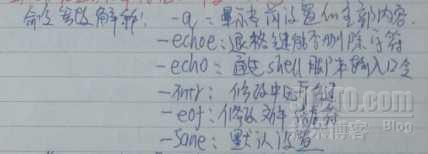 命令参数解释: -a: 显示当前设置的全部内容.
-echoe: 退格键能否删除字符
-echo: 首选shell脚本输入口令
-intr: 修改中断键
-eof: 修改文件结束符
-Sane: 默认设置
51CTO.com
技术博客 Blog